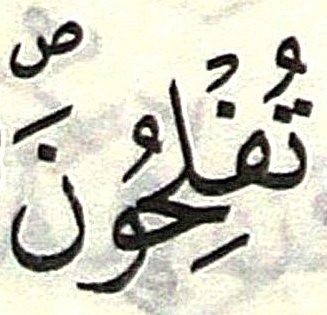 تُفْلِحُونَ ص